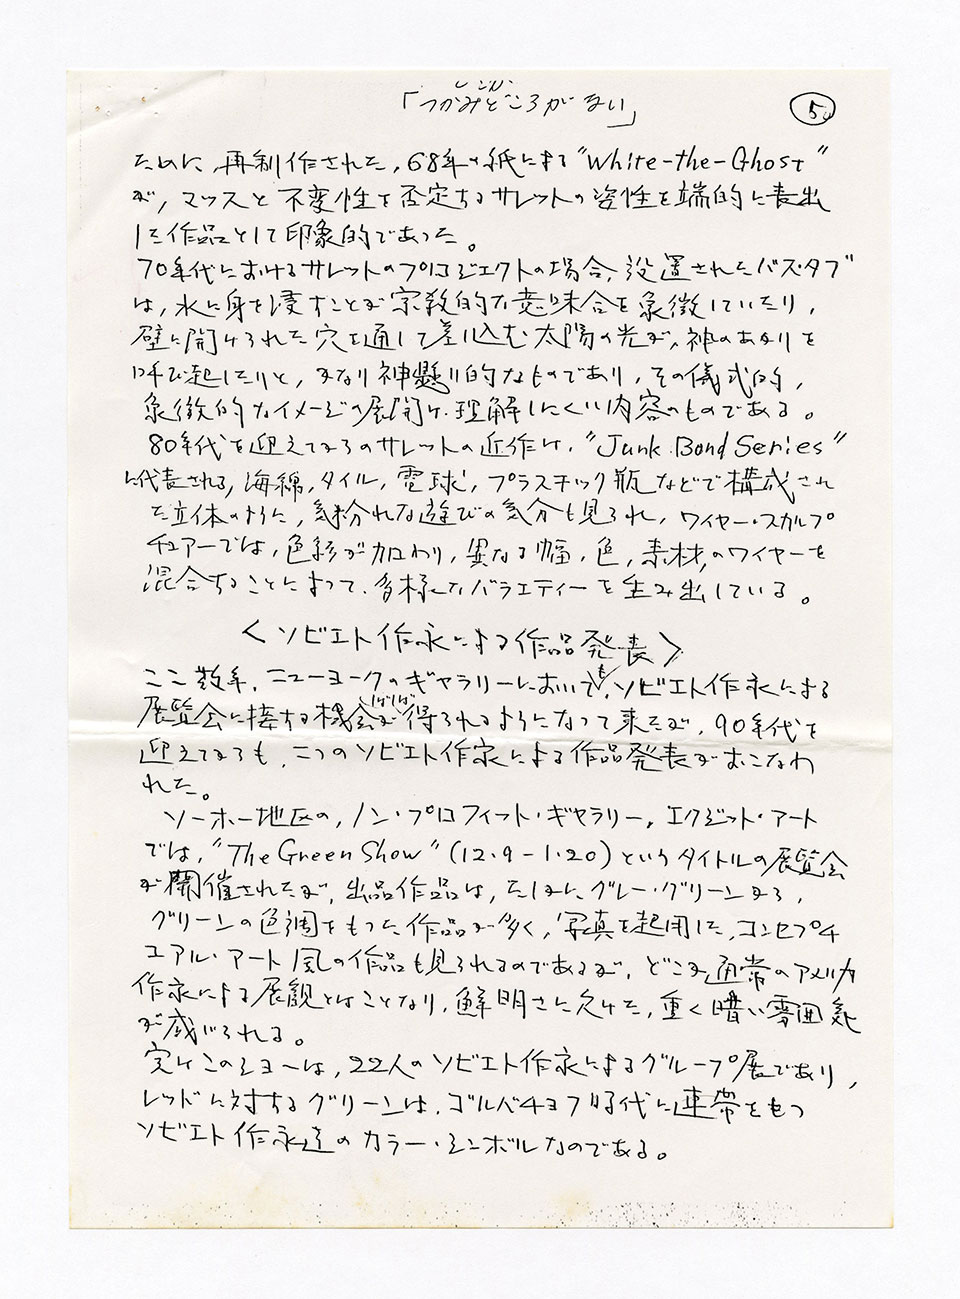 「つかみどころがない」
5
ために、再制作された、68年の紙による"White-the-Ghost"
が、マッスと不変性を否定するサレットの姿性を端的に表出
した作品として印象的であった。
70年代におけるサレットのプロジェクトの場合、設置されたバスタブ
は、水に身を浸すことが宗教的な意味合を象徴していたり、
壁に開けられた穴を通して差し込む太陽の光が、神のあかりを
呼び起したりと、かなり神懸り的なものであり、その儀式的、
象徴的なイメージの展開は、理解しにくい内容のものである。
80年代を迎えてからのサレットの近作は、"Junk Bond Series"
に代表される、海綿、タイル、電球、プラスチック瓶などで構成され
た立体のように、気粉れな遊びの気分も見られ、ワイヤー・スカルプ
チュアーでは、色彩が加わり、異なる幅、色、素材、のワイヤーを
混合することによって、多様なバラエティーを生み出している。
〈ソビエト作家による作品発表〉
ここ数年、ニューヨークのギャラリーにおいても、ソビエト作家による
展覧会に接する機会がしばしば得られるようになって来たが、90年代を
迎えてからも、二つのソビエト作家による作品発表がおこなわ
れた。
ソーホー地区の、ノン・プロフィット・ギャラリー、エクジット・アート
では、"The Green Show"(12.9-1.20)というタイトルの展覧会
が開催されたが、出品作品は、たしかに、グレー・グリーンから、
グリーンの色調をもった作品が多く、写真を起用した、コンセプチ
ュアル・アート風の作品も見られるのであるが、どこか通常のアメリカ
作家による展観とはことなり、鮮明さに欠けた、重く暗い雰囲気
が感じられる。
実はこのショーは、22人のソビエト作家によるグループ展であり、
レッドに対するグリーンは、ゴルバチョフ時代に連帯をもつ
ソビエト作家達のカラー・シンボルなのである。